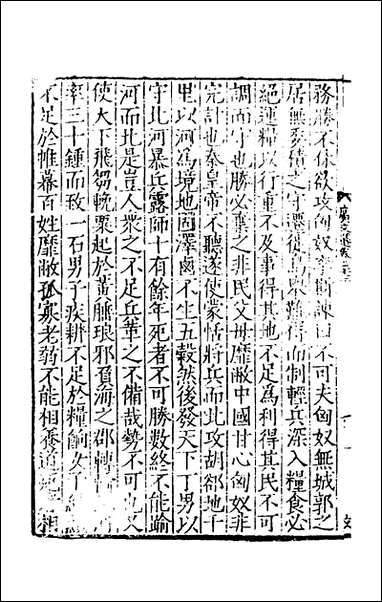 務勝不休欲攻匈奴李斯諫曰不可夫匈奴無城郭之
居無委積之守遷徙鳥舉難得而制輕兵深入糧食必
絕運糧以行重不及事得其地不足為利得其民不可
調而守也勝必棄之非民父母靡敝中國甘心匈奴非
完計也秦皇帝不聽遂使蒙恬將兵而北攻胡卻地千
里以河為境地固澤鹵不生五穀然後發天下丁男以
守北河暴兵露師十有餘年死者不可勝數終不能踰
河而北是豈人衆之不足兵革之不備哉勢不可也又
使天下飛芻輓粟起於黃腄琅邪負海之郡轉
率三十鍾而致一石男子疾耕不足於糧餉女子
不足於帷幕百姓靡敝孤寡老弱不能相養道死相